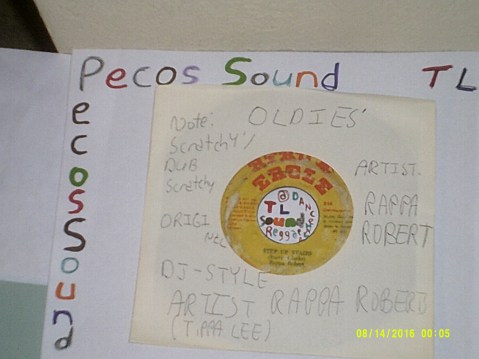 Pecos Sound TL
Pecos Sound
OLDIES'
Note:
Scratchy/
DUB
Scratchy
ORIGI
NEL
DJ-STYLE
ARTIST RAPPA ROBERT
(TIPPA LEE)
ARTIST.
RAPPA
ROBERT
EAGLE
@ DANCE
TL
Sound
Reggae
08/14/2016 00:05